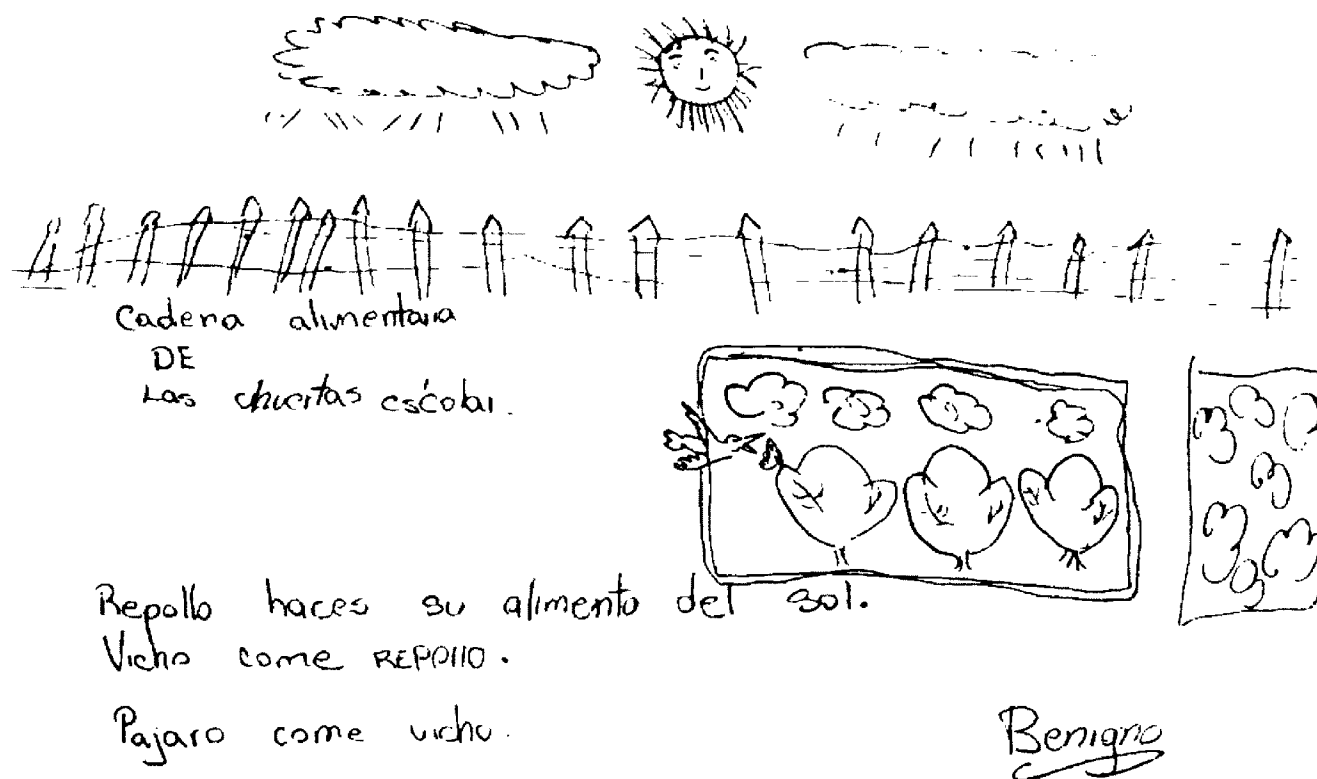 Cadena alimentaria
DE
Las chuertas escolar.
Repollo haces su alimento del sol.
Vicho come REPOllO.
Pajaro come vicho.
Benigno